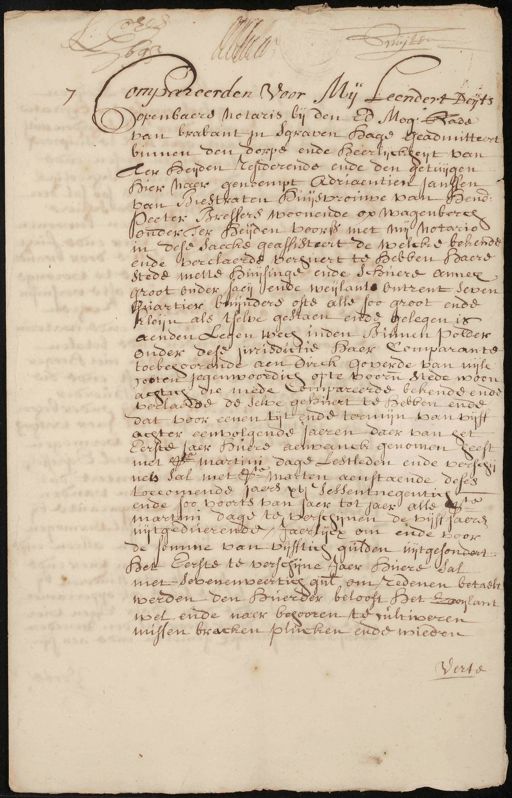 7 Compareerden Voor Mij Leendert Buijts
Openbaere Notaris bij den Ed Mog: Rade
van brabant in Sgraven hage geadmitteert
binnen den dorpe ende heerlijckheijt van
Ter heijden residerende ende den getuijgen
hier naer genoempt Adriaentien Janssen
van Brestraten huijsvrouwe van Hend:
Peeter Bressers woonende op wagenberch
onder Ter heijden voors: met mij Notario
in dese saecke geassisteert de welcke bekende
ende verclaerde verhuert te hebben haere
stede mette huijsinge ende schuere annex
groot onder saeij ende weijlant omtrent seven
quartier luijnders ofte alle soo groot ende
kleijn als t'selve gestaen ende gelegen is
aenden Legen wech inden Binnen polder
onder dese jurisdictie haer Comparante
toebehoorende aen Dirck Goverde van
jegenwoordich opte voorn stede woon
achtich die mede Compareerde bekende ende
verclaerde de selve gehuert te hebben ende
dat voor eenen tijt ende termijn van vijff
achter eenvolgende jaeren daer van het
Eerste jaer huere aenvanck genomen heeft
met St martini dage Lestleden ende verschij
nen sal met St Marten aenstaende deses
toecomende jaers xvj sessentnegentich
ende soo voorts van jaer tot jaer alle Ste
martini dage te verschijnen de vijff jaeren
uijtgeduerende / Jaerlijcx om ende voor
de somme van vijfftich gulden uijtgesondert
het Eerste te verschijne Jaer huere sal
met sevenenveertich gul. om redenen betaelt
werden den huerder belooft het Weijlant
wel ende naer behooren te cultiveren
missen bracken plucken ende wieden
Verte